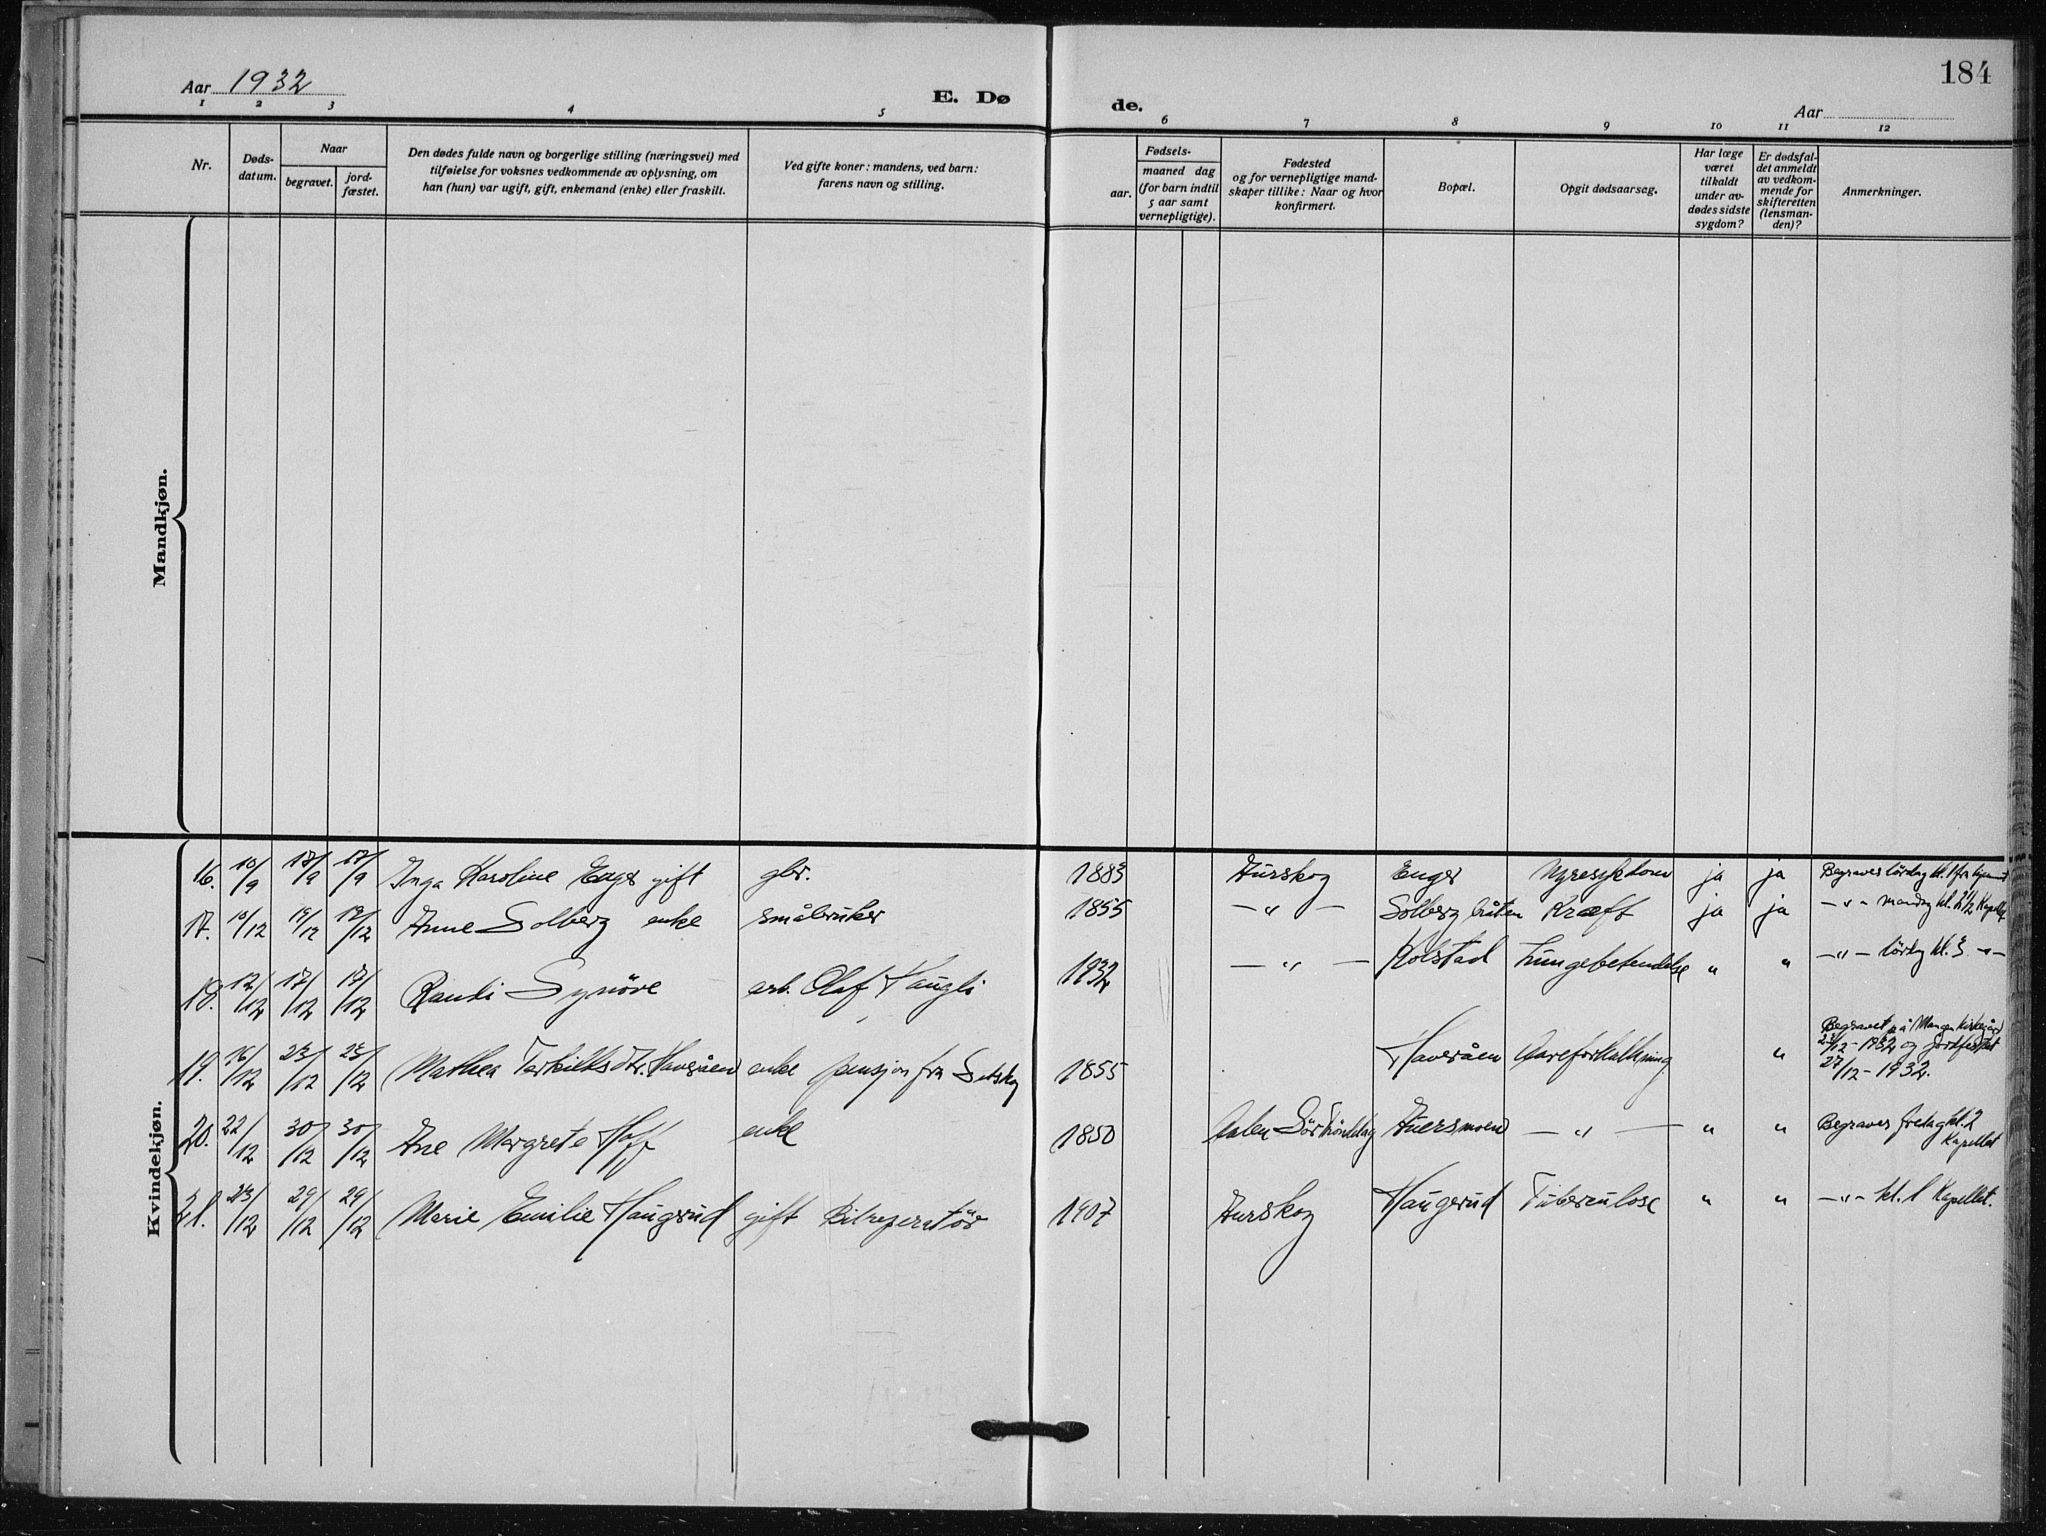 184
Aar 1932
E. Dø
de.
Aar
1 2 3 4 5 6 7 8 9 10 11 12
Nr.
Døds-
datum.
Naar
begravet.
jord-
fæstet.
Den dødes fulde navn og borgerlige stilling (næringsvei) med
tilføielse for voksnes vedkommende av oplysning, om
han (hun) var ugift, gift, enkemand (enke) eller fraskilt.
Ved gifte koner: mandens, ved barn:
farens navn og stilling.
Fødsels-
aar.
maaned dag
(for barn indtil
5 aar samt
vernepligtige).
Fødested
og for vernepligtige mand-
skaper tillike: Naar og hvor
konfirmert.
Bopæl.
Opgit dødsaarsag.
Har læge
været
tilkaldt
under av-
dødes sidste
sygdom?
Er dødsfal-
det anmeldt
av vedkom-
mende for
skifteretten
(lensman-
den)?
Anmerkninger.
Mandkjøn.
Kvindekjøn.
16. 10/9 17/9 17/9 Inga Karoline Enger gift gbr. 1883 Aurskog Enger Nyresykdom ja ja Begraves lördag kl. 1 fra
17. 10/12 19/12 19/12 Anne Solberg enke småbruker 1855 -"- Solbergbråten Kræft ja ja -"- mandag kl. 2 1/2 Kapellet
18. 12/12 17/12 17/12 Randi Synöve arb. Olaf Haugli 1932 -"- Kolstad Lungebetendelse " " -"- lördag kl. 3 -"-
19. 16/12 23/12 23/12 Mathea Terkilksdtr. Haveråen enke pensjon fra Setskog 1855 Haveråen Aareforkalkning " Begravet på Mangen kirkegård
23/12-1932 og jordfæstet
27/12-1932.
20. 22/12 30/12 30/12 Ane Margrete Hoff enke 1850 Aalen Sör Tröndelag Auersmoen -"- " " Begraves fredag kl. 2
Kapellet
21. 23/12 29/12 29/12 Marie Emilie Haugerud gift Bilreperatör 1907 Aurskog Haugerud Tuberculose " " -"- kl. 1 Kapellet.